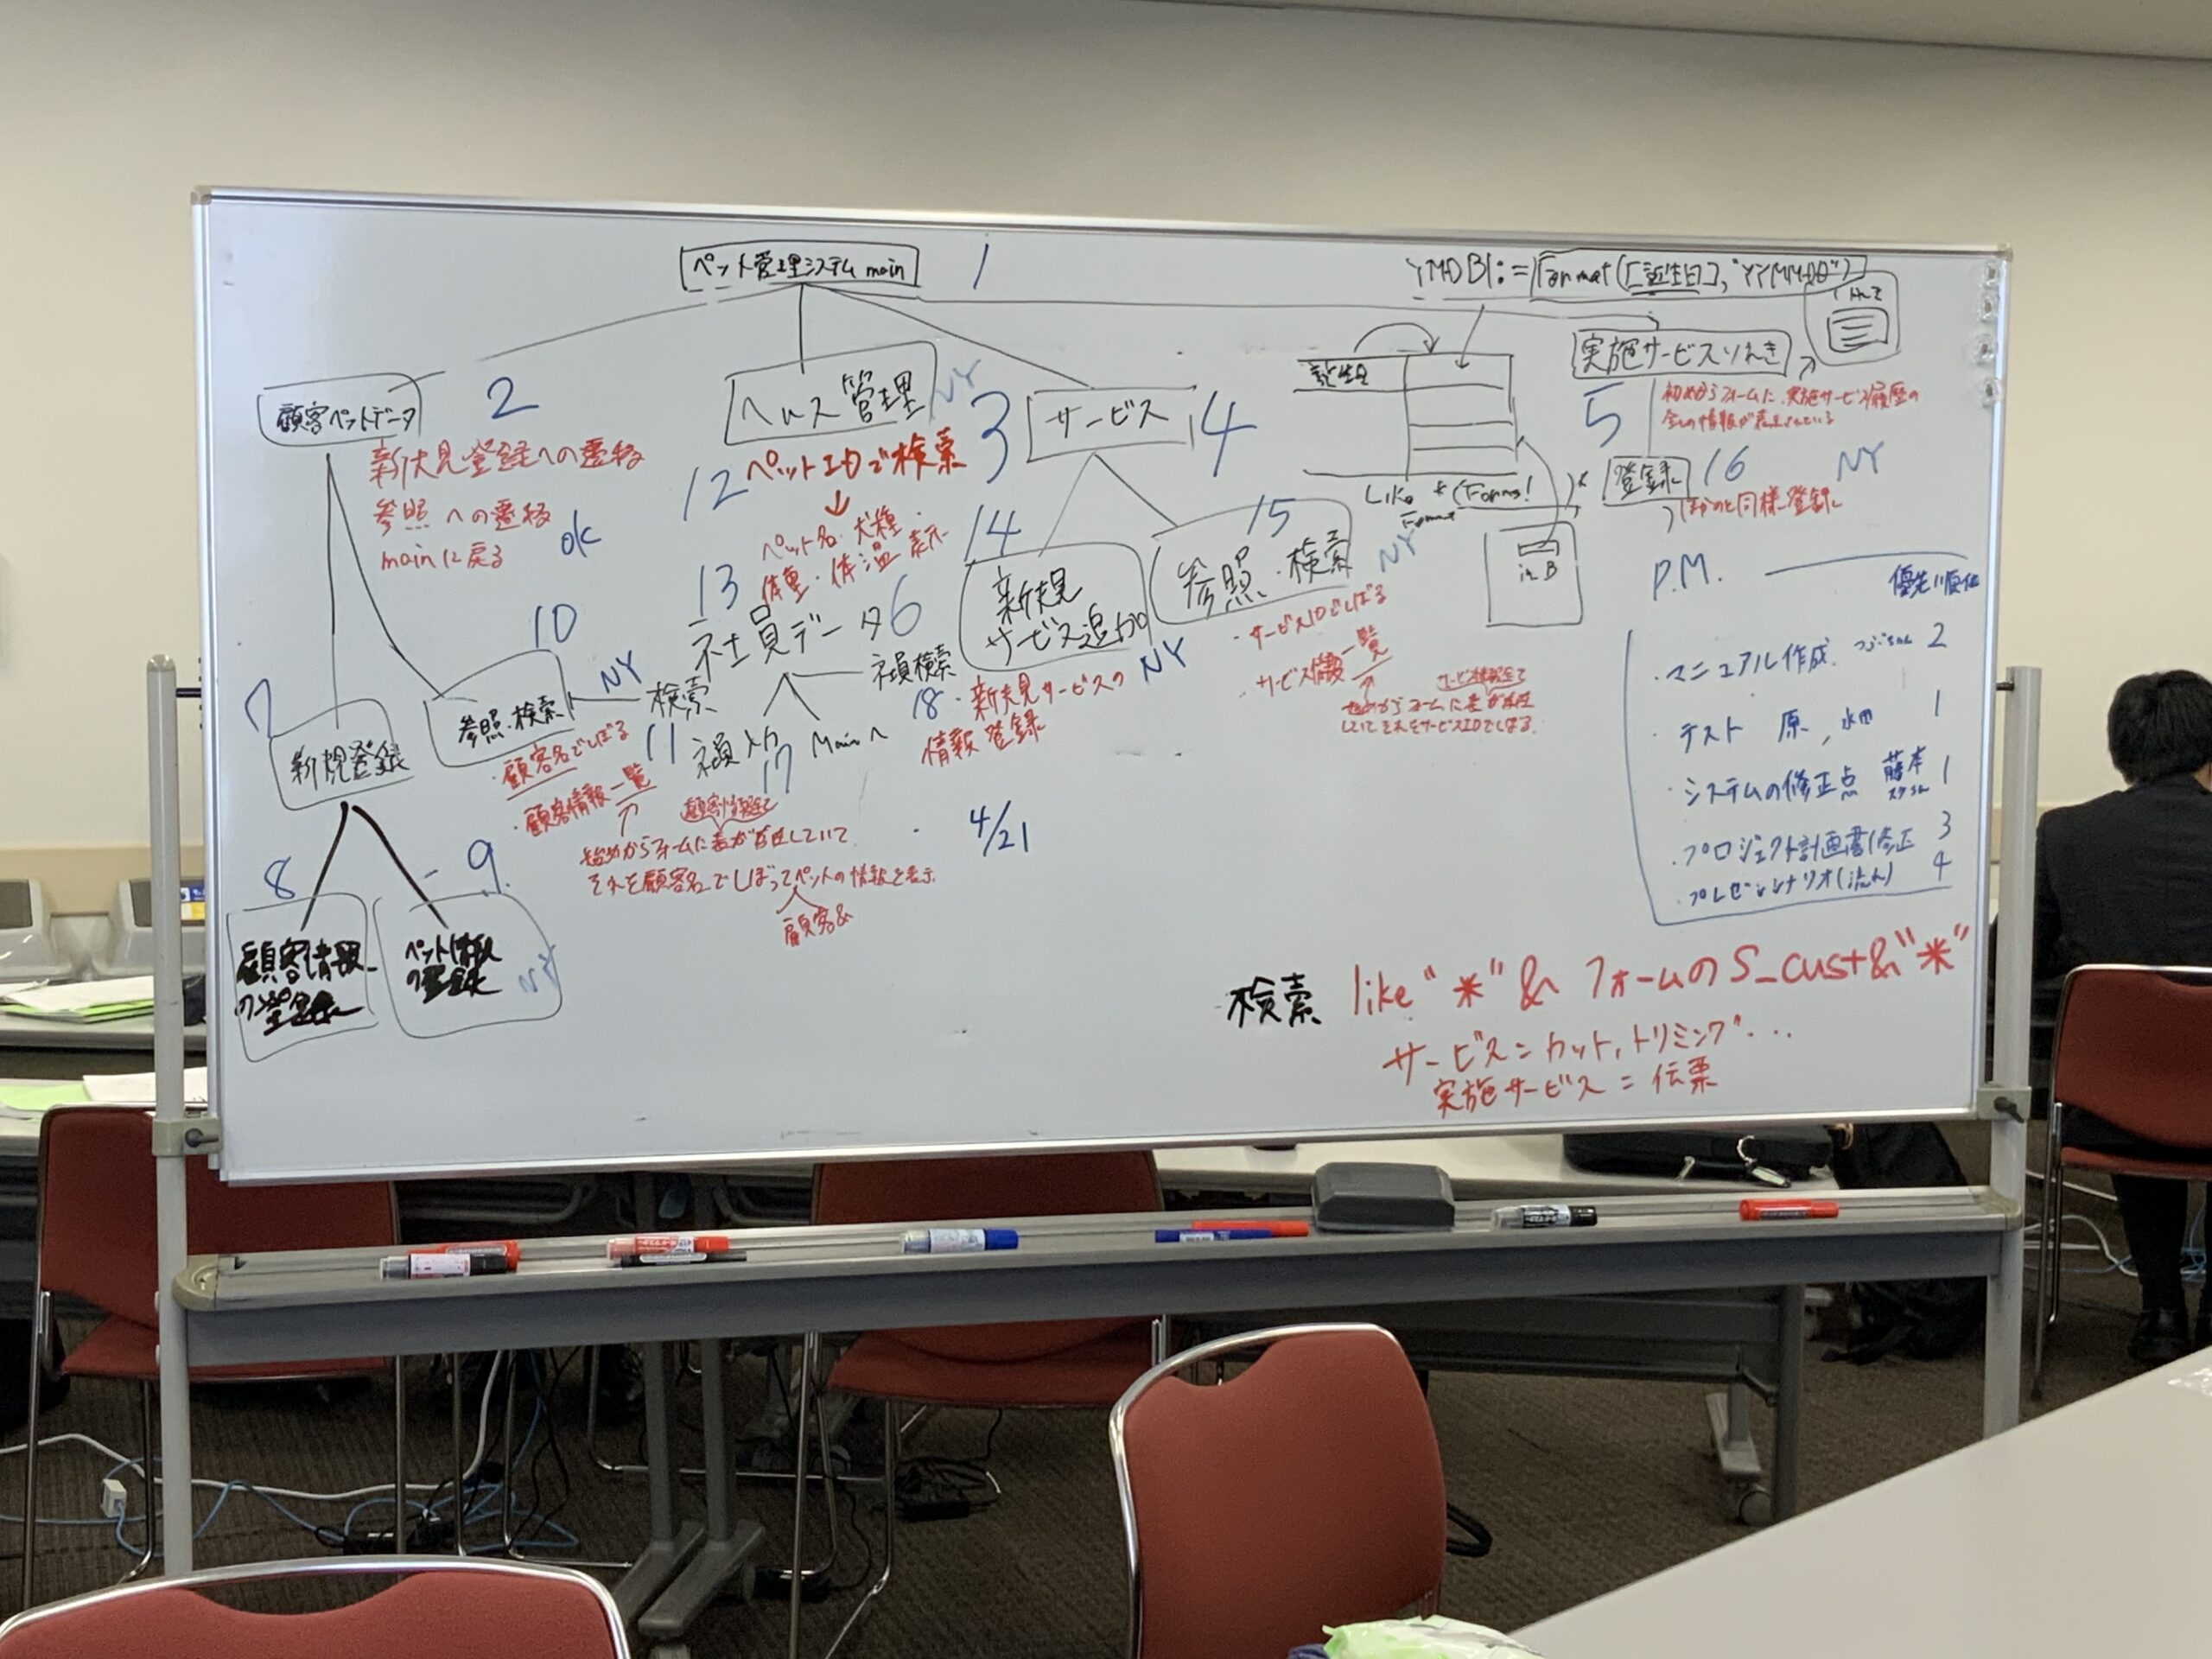 ペット管理システム main
1
YMDBI:=Format([誕生日],"YYMMDD")
顧客ペットデータ
2
新規見登録への遷移
参照への遷移
mainに戻る
ok
ヘルス管理
NY
3
12
ペットIDで検索
ペット名・犬種・
体重・体温 表示
サービス
4
誕生日
Like *(Forms!
in B
実施サービスりれき
5
初めからフォームに実施サービス履歴の
全ての情報が
登録
16
NY
ほかのと同様登録
7
新規登録
8
顧客情報
の登録
9
ペット情報
の登録
NY
10
参照・検索
NY
検索
11
・顧客名でしぼる
・顧客情報一覧
顧客情報全て
始めからフォームに表が存在していて
それを顧客名でしぼってペットの情報を表示
顧客&
13
社員データ
6
社員検索
18
社員入力
17
Mainへ
14
新規
サービス追加
NY
・新規見サービスの
情報登録
15
参照・検索
NY
・サービスIDでしぼる
サービス情報一覧
サービス情報全て
始めからフォームに表が存在
していてそれをサービスIDでしぼる
4/21
P.M.
優先順位
・マニュアル作成 2
・テスト 原, 水田 1
・システムの修正点 藤本 1
・プロジェクト計画書修正 3
・プレゼンシナリオ(流れ) 4
・検索 like"*"& フォームのS_cust&"*"
サービス=カット,トリミング・・・
実施サービス=伝票